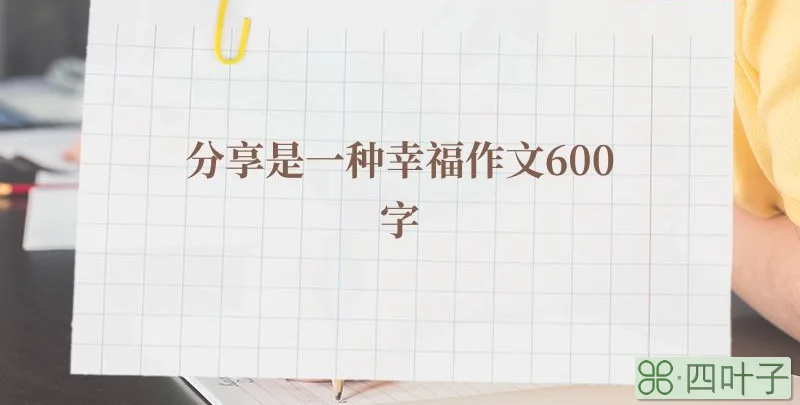 分享是一种幸福作文600
字
四叶子